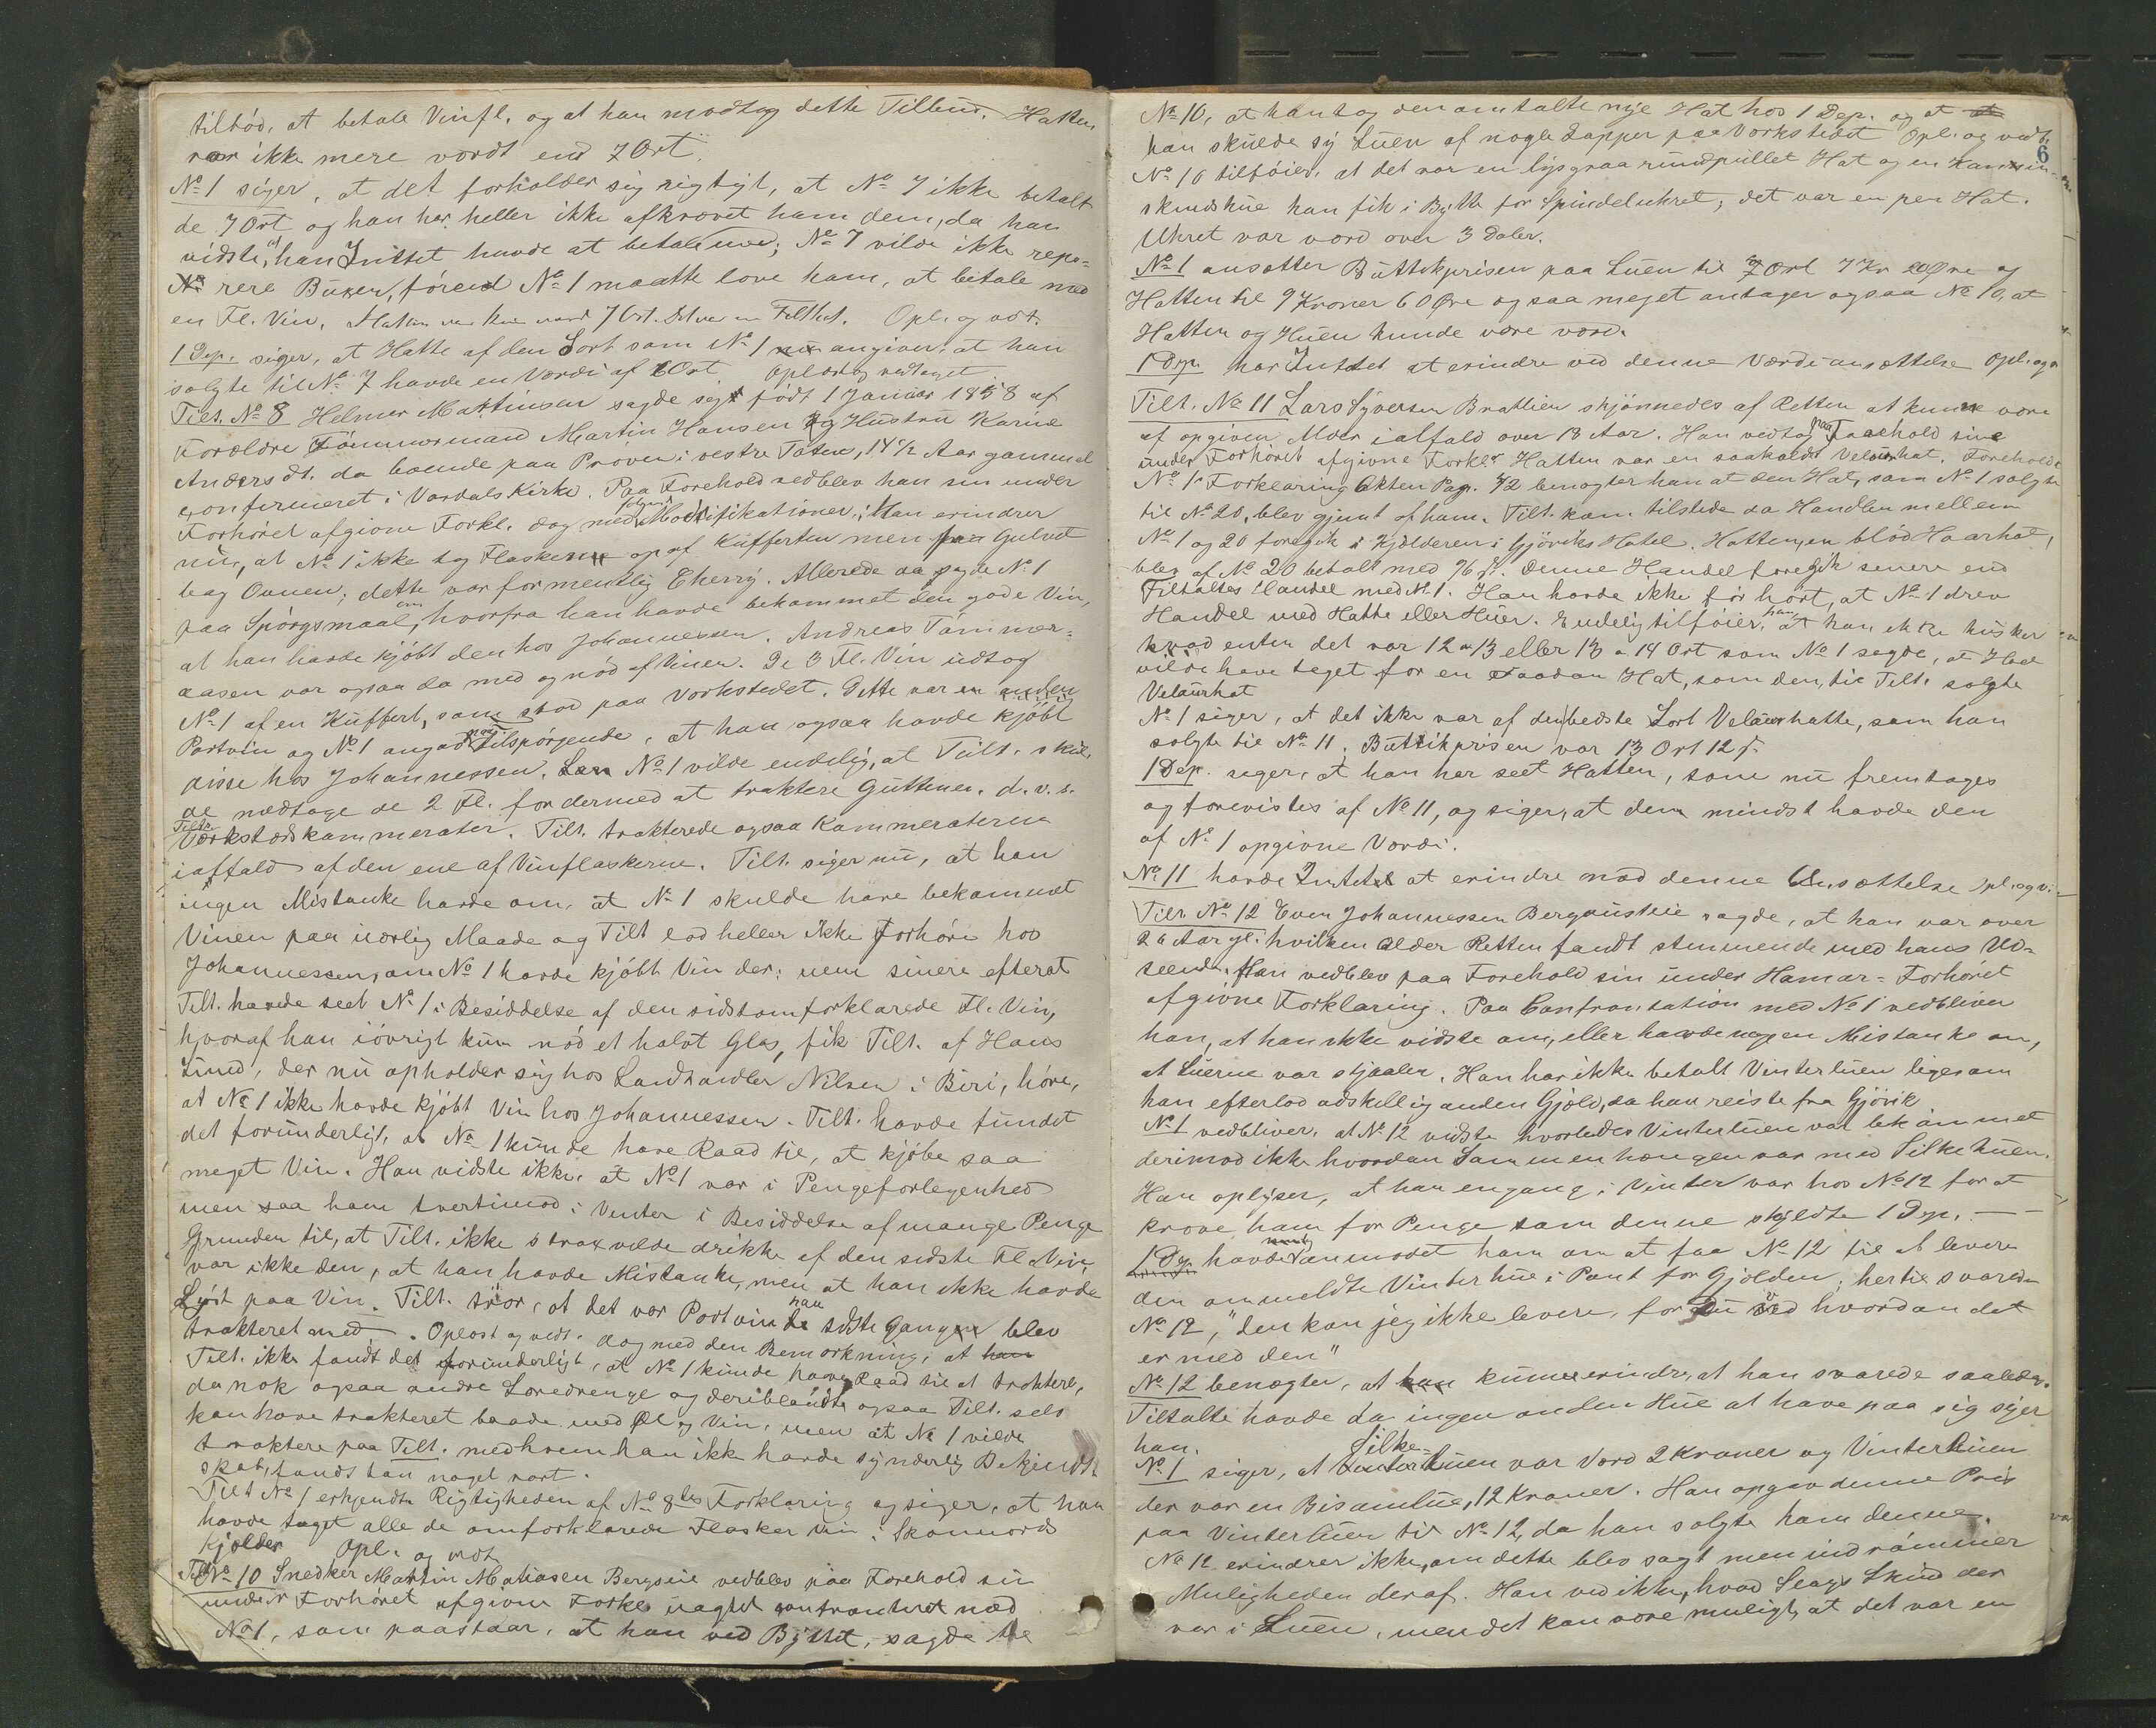 tilbød, at betale Vinfl. og at han modtog dette Tilbud. Hatten
var ikke mere værdt end 7 Ort.
No 1 siger, at det forholder sig rigtigt, at No 7 ikke betalt
de 7 Ort og han har heller ikke afkrævet ham dem, da han
vidste, at han Intet havde at betale med; No 7 vilde ikke repa-
rere Buxen, førend No 1 maatte love ham, at betale med
en Fl. Vin. Hatten var kun værd 7 Ort. Det var en Filthat. Opl. og vdt.
1 Dep. siger, at Hatte af den Sort som No 1 angiver, at han
solgte til No 7 havde en Værdi af 8 Ort Oplæst og vedtaget
Tilt. No 8 Helmer Martinsen sagde sig født 1 Januar 1858 af
Forældre Tømmermand Martin Hansen og Hustru Karine
Andersdt. da boende paa Prøven i vestre Toten, 14 1/2 Aar gammel
confirmeret i Vardals Kirke. Paa Forehold vedblev han sin under
Forhøret afgivne Forkl. dog med følgende Modifikationer: Han erindrer
nu, at No 1 ikke tog Flaskerne op af Kufferten men paa Gulvet
bag Ovnen; dette var formentlig Cherry. Allerede da sagde No 1
paa Spørgsmaal om, hvorfra han havde bekommet den gode Vin,
at han havde kjøbt den hos Johannessen. Andreas Tømmer-
aasen var ogsaa da med og nød af Vinen. De 3 Fl. Vin udtog
No 1 af en Kuffert, som stod paa Værkstedet. Dette var en anden
Portvin og No 1 angav Tilspørgende, at han ogsaa havde kjøbt
disse hos Johannessen. No 1 vilde endelig, at Tilt. skul-
de modtage de 2 Fl. for dermed at traktere Guttene. d. v. s.
Tiltes Værkstedskammerater. Tilt. trakterede ogsaa Kammeraterne
iaffald af den ene af Vinflaskerne. Tilt. siger nu, at han
ingen Mistanke havde om, at No 1 skulde have bekommet
Vinen paa uærlig Maade og Tilt lod heller ikke forhøre hos
Johannessen, om No 1 havde kjøbt Vin der; men senere efterat
Tilt. havde seet No 1 i Besiddelse af den sidstomforklarede Fl. Vin,
hvoraf han iøvrigt kun nød et halvt Glas, fik Tilt. af Hans
Lund, der nu opholder sig hos Landhandler Nilsen i Biri, høre,
at No 1 ikke havde kjøbt Vin hos Johannessen. Tilt. havde fundet
det forunderligt, at No 1 kunde have Raad til, at kjøbe saa
meget Vin. Han vidste ikke, at No 1 var i Pengeforlegenhed
men saa ham tvertimod i Vinter i Besiddelse af mange Penge
Grunden til, at Tilt. ikke strax vilde drikke af den sidste Fl. Vin,
var ikke den, at han havde Mistanke, men at han ikke havde
Lyst paa Vin. Tilt. tror, at det var Portvin han sidste Gang blev
trakteret med. Oplæst og vedt. dog med den Bemærkning, at
Tilt. ikke fandt det forunderligt, at No 1 kunde have Raad til at traktere,
da nok ogsaa andre Læredrenge og deriblandt ogsaa Tilt. selv
kan have trakteret baade med Øl og Vin, men at No 1 vilde
traktere paa Tilt. med hvem han ikke havde synderlig Bekjendt-
skab, fandt han noget rart.
Tilt No 1 erkjendte Rigtigheden af No 8tes Forklaring og siger, at han
havde taget alle de omforklarede Flasker Vin i Skonnords
Kjelder Opl. og vedt.
Tilt No 10 Snedker Martin Matiasen Bergsvie vedblev paa Forehold sin
under Forhøret afgivne Forkl. uagtet confronteret med
No 1, som paastaar, at han ved Byttet, sagde til
6
No 10, at han tog den omtalte nye Hat hos 1 Dep. og at
han skulde sy Luen af nogle Lapper paa Værkstedet Opl. og vedt.
No 10 tilføier, at det var en lysgraa rundpullet Hat og en Kanin-
skindshue han fik i Bytte for Spindeluhret; det var en pen Hat.
Uhret var værd over 3 Daler.
No 1 ansætter Butikprisen paa Luen til 7 Ort 7 Kr 20 Øre og
Hatten til 9 Kroner 60 Øre og saa meget antager ogsaa No 10, at
Hatten og Huen kunde være værd.
1 Dep. har Intet at erindre ved denne Værdiansættelse Opl. og v
Tilt. No 11 Lars Syversen Brattlien skjønnedes af Retten at kunne være
af opgiven Alder ialfald over 18 Aar. Han vedtog paa Forehold sine
under Forhøret afgivne Forkl. Hatten var en saakaldt Velourhat. Foreholdt
No 1s Forklaring Akten Pag. 72 benægter han at den Hat, som No 1 solgte
til No 20, blev gjemt af ham. Tilt. kom tilstede da Handlen mellem
No 1 og 20 foregik i Kjelderen i Gjøviks Hotel. Hatten, en blød Haarhat,
blev af No 20 betalt med 96 s. Denne Handel foregik senere end
Tiltaltes Handel med No 1. Han havde ikke før hørt, at No 1 drev
Handel med Hatte eller Huer. Endelig tilføier han, at han ikke husker
hvad enten det var 12 a 13 eller 13 a 14 Ort som No 1 sagde, at Had
vilde have taget for en saadan Hat, som den, til Tilt. solgte
Velourhat
No 1 siger, at det ikke var af den bedste Sort Velourhatte, som han
solgte til No 11. Butikprisen var 13 Ort 12 s.
1 Dep. siger, at han har seet Hatten, som nu fremtages
og forevistes af No 11, og siger, at den mindst havde den
af No 1 opgivne Værdi.
No 11 havde Intet at erindre mod denne Ansættelse Opl. og v
Tilt. No 12 Even Johannessen Bergaustuie sagde, at han var over
26 Aar gl. hvilken Alder Retten fandt stemmende med hans Ud-
seende. Han vedblev paa Forehold sin under Hamar-Forhøret
afgivne Forklaring. Paa Confrontation med No 1 vedbliver
han, at han ikke vidste om, eller havde nogen Mistanke om,
at Luerne var stjaalen. Han har ikke betalt Vinterluen ligesom
han efterlod adskillig anden Gjæld, da han reiste fra Gjøvik
No 1 vedbliver, at No 12 vidste hvorledes Vinterluen var bekommet
derimod ikke hvordan Sammenhængen var med Silkehuen.
Han oplyser, at han engang i Vinter var hos No 12 for at
kræve ham for Penge som denne skyldte 1 Dep. — —
1 Dep. havde anmodet ham om at faa No 12 til at levere
den ommeldte Vinterhue i Pant for Gjælden; hertil svarede
No 12, "den kan jeg ikke levere, for Du ved hvordan det
er med den"
No 12 benægter, at kunne erindre, at han svarede saaledes.
Tiltalte havde da ingen anden Hue at have paa sig siger
han.
No 1 siger, at Silkeluen var Værd 2 Kroner og Vinterluen
der var en Bisamlue, 12 Kroner. Han opgav denne Pris
paa Vinterluen til No 12, da han solgte ham denne.
No 12 erindrer ikke, om dette blev sagt men indrømmer
Muligheden deraf. Han ved ikke, hvad Slags Skind der
var i Luen, men det kan være muligt, at det var en